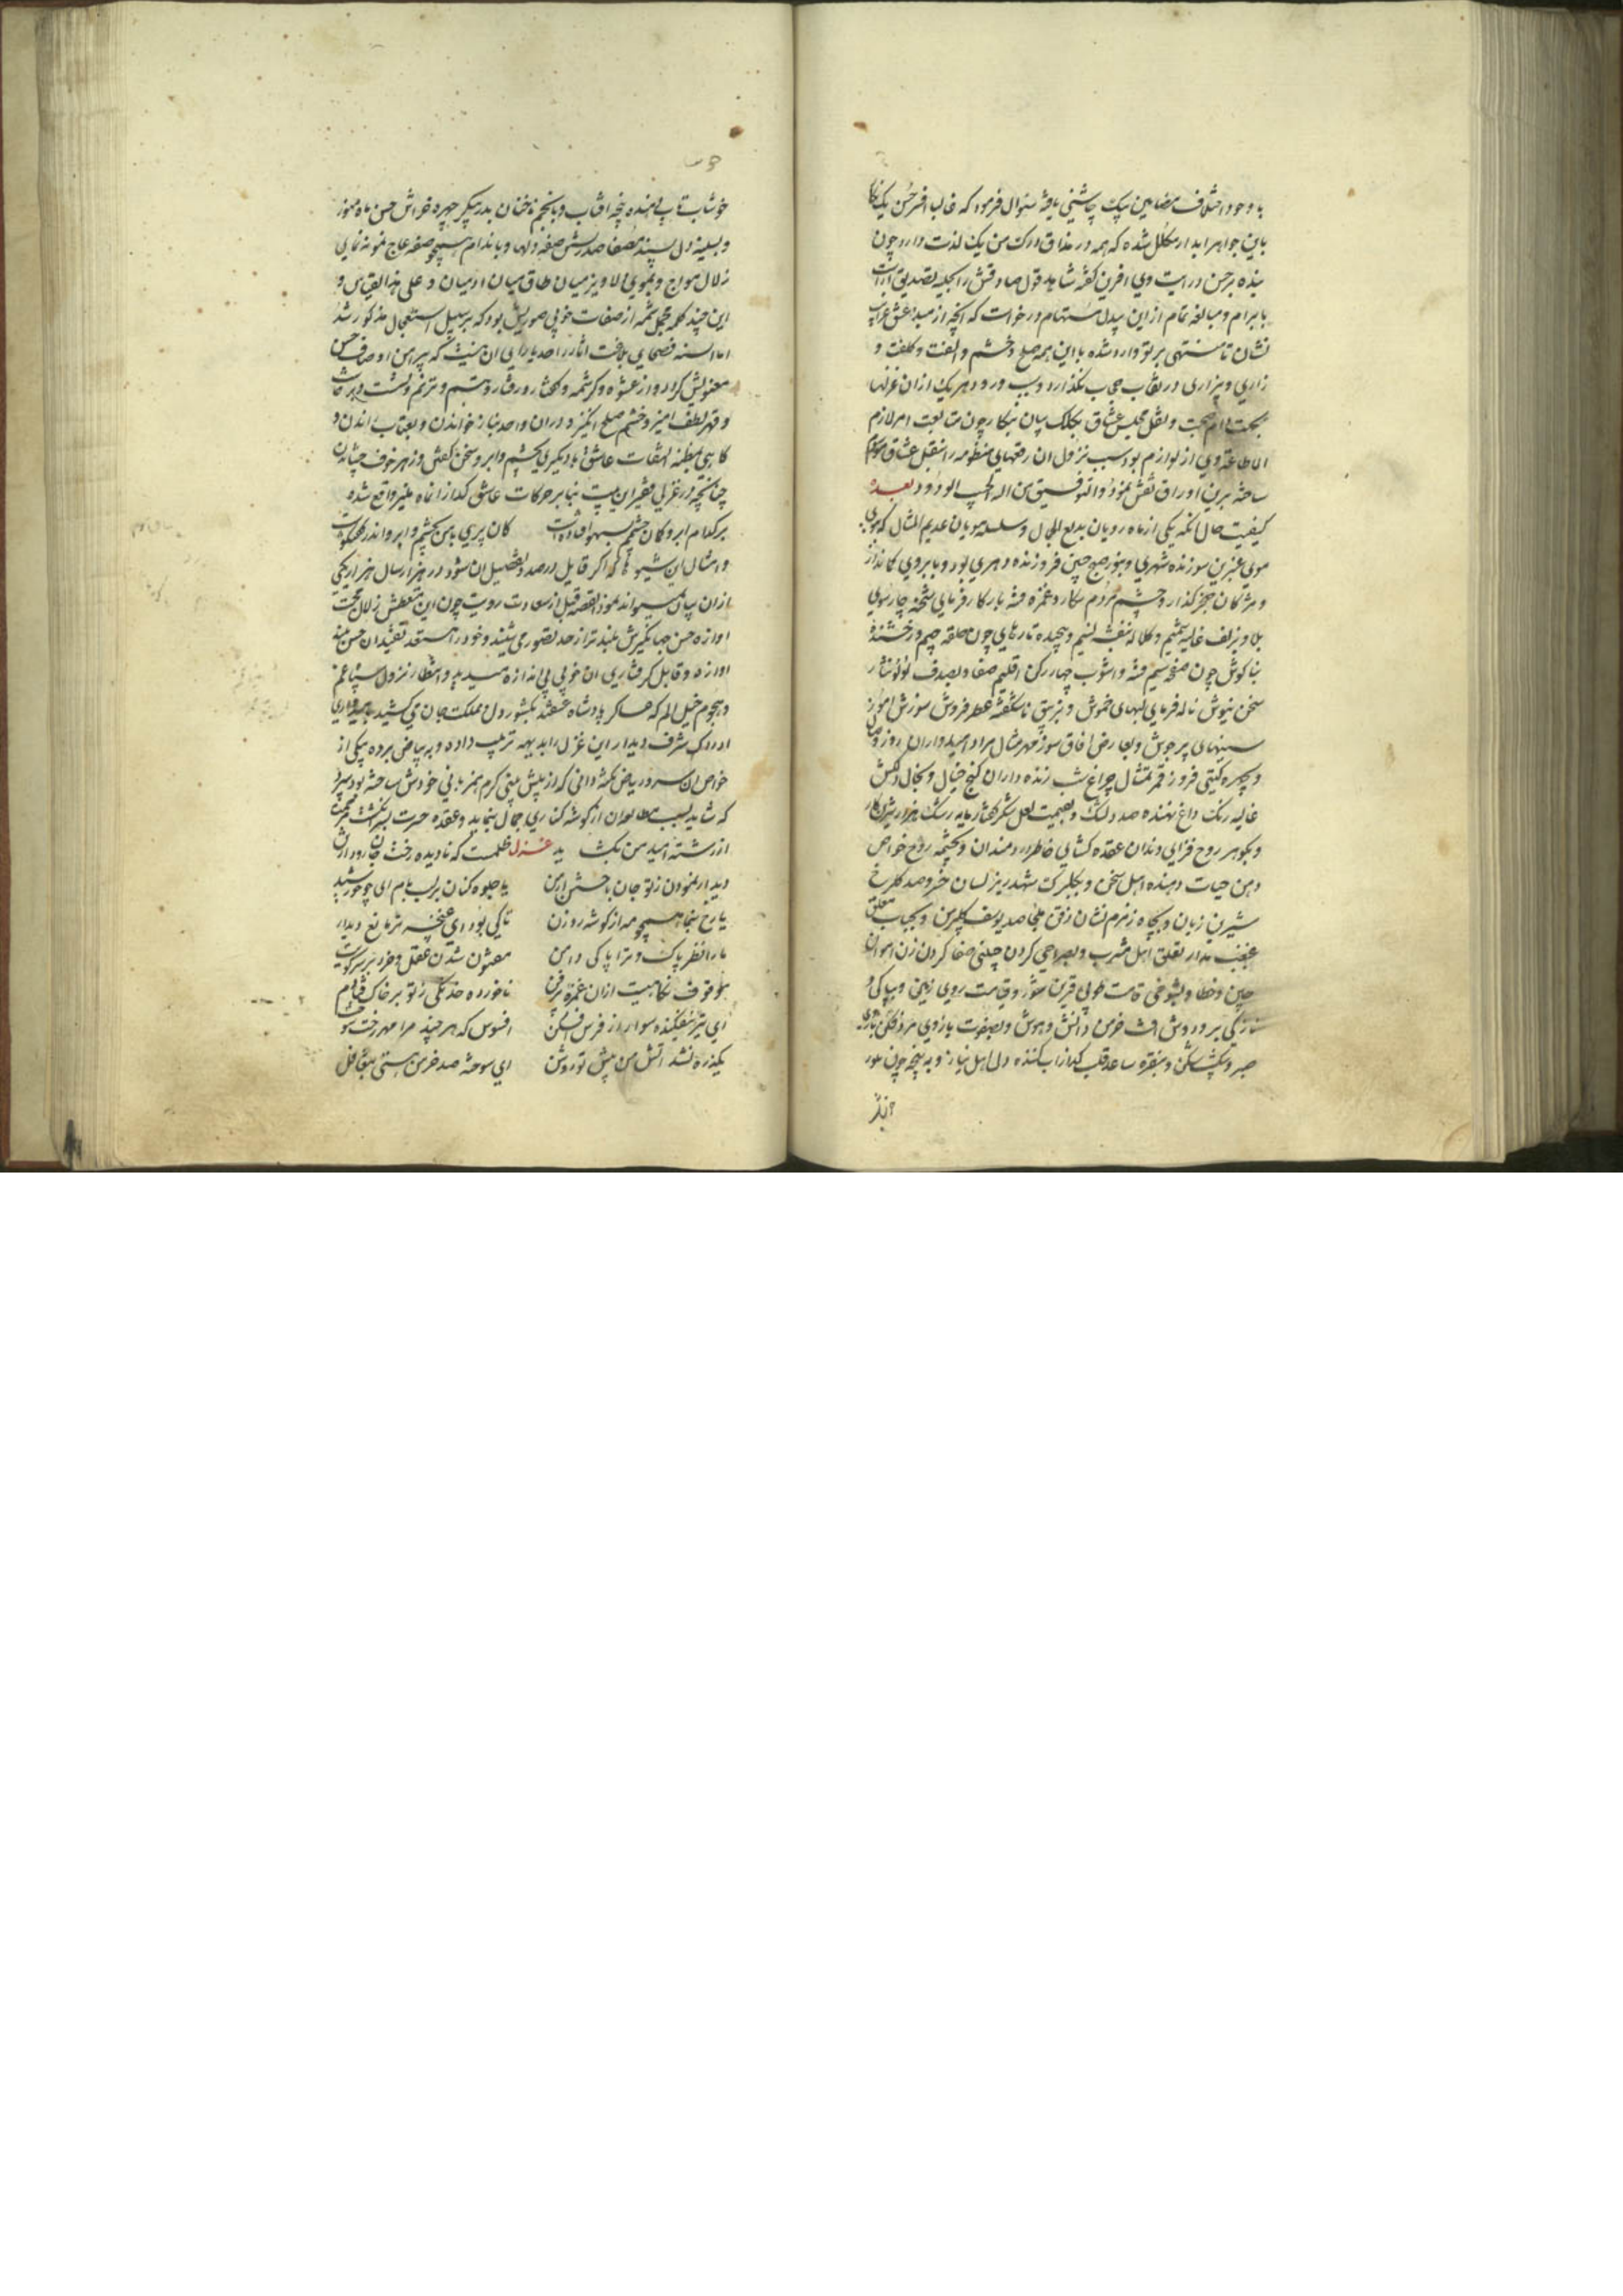 با وجود اختلاف مضامین بیک چاشنی یافته سئوال فرمود که غالبا افسر حسن یک نگار
باین جواهر ابدار مکلل شده که همه در مذاق درک من یک لذت دارد چون
بنده بر حسن درایت وی افرین گفته شاهد قول صادقش را بحلیه تصدیق اراست
بابرام و مبالغه تمام ازین بیدل مستهام درخواست که آنچه از مبدا عشق غرایب
نشان تا منتهی بر تو وارد شده با این همه صلح و خشم و الفت و کلفت و
زاری و بیزاری در نقاب حجاب نگذارد و سبب ورود هر یک ازان غزلها
بجهت دوام صحبت و نقل مجلس عشاق بکلک بیان بنکار چون متابعت امر لازم
الاطاعة وی از لوازم بود سبب نزول ان رقمهای منظومه را
ساخته برین اوراق نقش نمود و التوفیق من اله المحب الودود بعده
کیفیت حال انکه یکی از ماه رویان بدیع الجمال و سلسله مویان عدیم المثال که
موی عنبرین سوزنده شهری و بنور صبح جبین فروزنده دهری بود و بابروی کماندار
و مژکان جگر گذار و چشم مردم شکار و غمزه فتنه بار کارفرمای شحنه چارسوی
بلا و بزلف غالیه شمیم و کلاله بنفشه نسیم و پیچیده تارهای چون حلقه جیم و رخشنده
بناکوش چون صفحه سیم فتنه و اشوب چهار رکن اقلیم صفا و بصدف لؤلؤ نثار
سخن نیوش ناله فرمای لبهای خموش و بزنبق ناشکفته عطر فروش سوزش اموز
سینهای پرجوش و بعارض افاق سوز مهر مثال مراد امیدواران روز وصال
و بچهره گیتی فروز قمر تمثال چراغ شب زنده داران کنج خیال و بخال دلکش
غالیه رنگ داغ نهنده صد دلتنگ و بقیمت لعل شکر گفتار مایه رشک هزار شیرین کار
و بگوهر روح فزای دندان عقده کشای خاطر دردمندان و بچشمه روح خواص
دهن حیات دهنده اهل سخن و بجلبرک شهد ریز لسان خسرو صد کلرخ
شیرین زبان و بچاه زمزم نشان ذقن ملجا صد یوسف گلپیرهن و بحباب معلق
غبغب مدار تعلق اهل مشرب و بصراحی کردن چلیپی صفا کردن زن اهوان
چین و خطا و بشوخی قامت طوبی قرین شور قیامت روی زمین و بپاکی و
نازکی بر و دوش افت خرمن دانش و هوش و بصفوت بازوی مردفکن بازوی
صبر و شکیب شکن و بنقره ساعد قلب کداز اب کننده دل اهل نیاز و به پنجه چون بلور
خوشاب تاب دهنده پنجه افتاب و بانجم ناخنان بدر پیکر چهره خراش حسن ماه منور
و بسینه دل پسند مصفا صدرنشین صفه دلها و باندام همچو صفحه عاج نمونه نمای
زلال مواج و بموی دلاویز میان طاق میان ادمیان و علی هذا القیاس و
این چند کلمه مجمل شمه از صفات خوبی صوریش بود که بر سبیل استعجال مذکور شد
اما السنه فصحای بلاغت اثار را حد یارای ان نیست که پیرامن اوصاف حسن
معنویش گردد و از عشوه و کرشمه و گفتار و رفتار و تبسم و ترنم و نشست و برخاست
و قهر لطف امیز و خشم صلح انگیز و در ان واحد بناز خواندن و بعتاب راندن و
کاهی بمظنه التفات عاشق با دیگری بچشم و ابرو سخن گفتن و زهر خوف چشاندن
چنانچه در غزلی فقیر این بیت بنا بر حرکات عاشق گداز انماه منیر واقع شده
بر کدام ابرو کمان چشمم بسهو افتاده است کان پری با من بچشم و ابرو اندر گفتگوست
و امثال این شیوها که اگر قایل در صدد تفصیل ان شود در هزار سال هزار یکی
ازان بیان نمیتواند نمود القصه قبل از سعادت رویت چون این متعطش زلال محبت
اوازه حسن جهانگیرش بلند تر از حد تصور می شنید و خود را مستعد
اوازه و قابل گرفتاری ان خوبی بی اندازه میدید و انتظار نزول سپاه غم
و هجوم خیل الم که عساکر پادشاه عشقند بکشور دل و مملکت جان می کشید بامیدواری
ادراک شرف دیدار این غزل را بدیهه ترتیب داده و به بیاض برده بیکی از
خواص ان سرو ریاض نکته دانی که از پیش بینی کرم همزبانی خودش ساخته بود سپرد
که شاید بسبب مطالعه ان از گوشه کناری جمال بنماید و عقده حسرت بسرانگشت مرحمت
از رشته امید من بگشاید غزل ظلمست که نادیده رخت جان رود از تن
دیدار نمودن ز تو جان باختن از من یا جلوه کنان بر لب بام ای چو خورشید
یا رخ بنما همچو مه از گوشه روزن تا کی بود ای غنچه تر مانع دیدار
ما را نظر پاک و ترا پاکی دامن مفتون شدن عقل و خرد بر سر کویت
موقوف نگاهیست ازان غمزه پرفن ناخورده خدنگی ز تو بر خاک فتادم
ای تیر نیفکنده سوار از فرس افکن افسوس که هر چند مرا مهر رخت سوخت
یکذره نشد اتش من پیش تو روشن ای سوخته صد خرمن هستی بتغافل